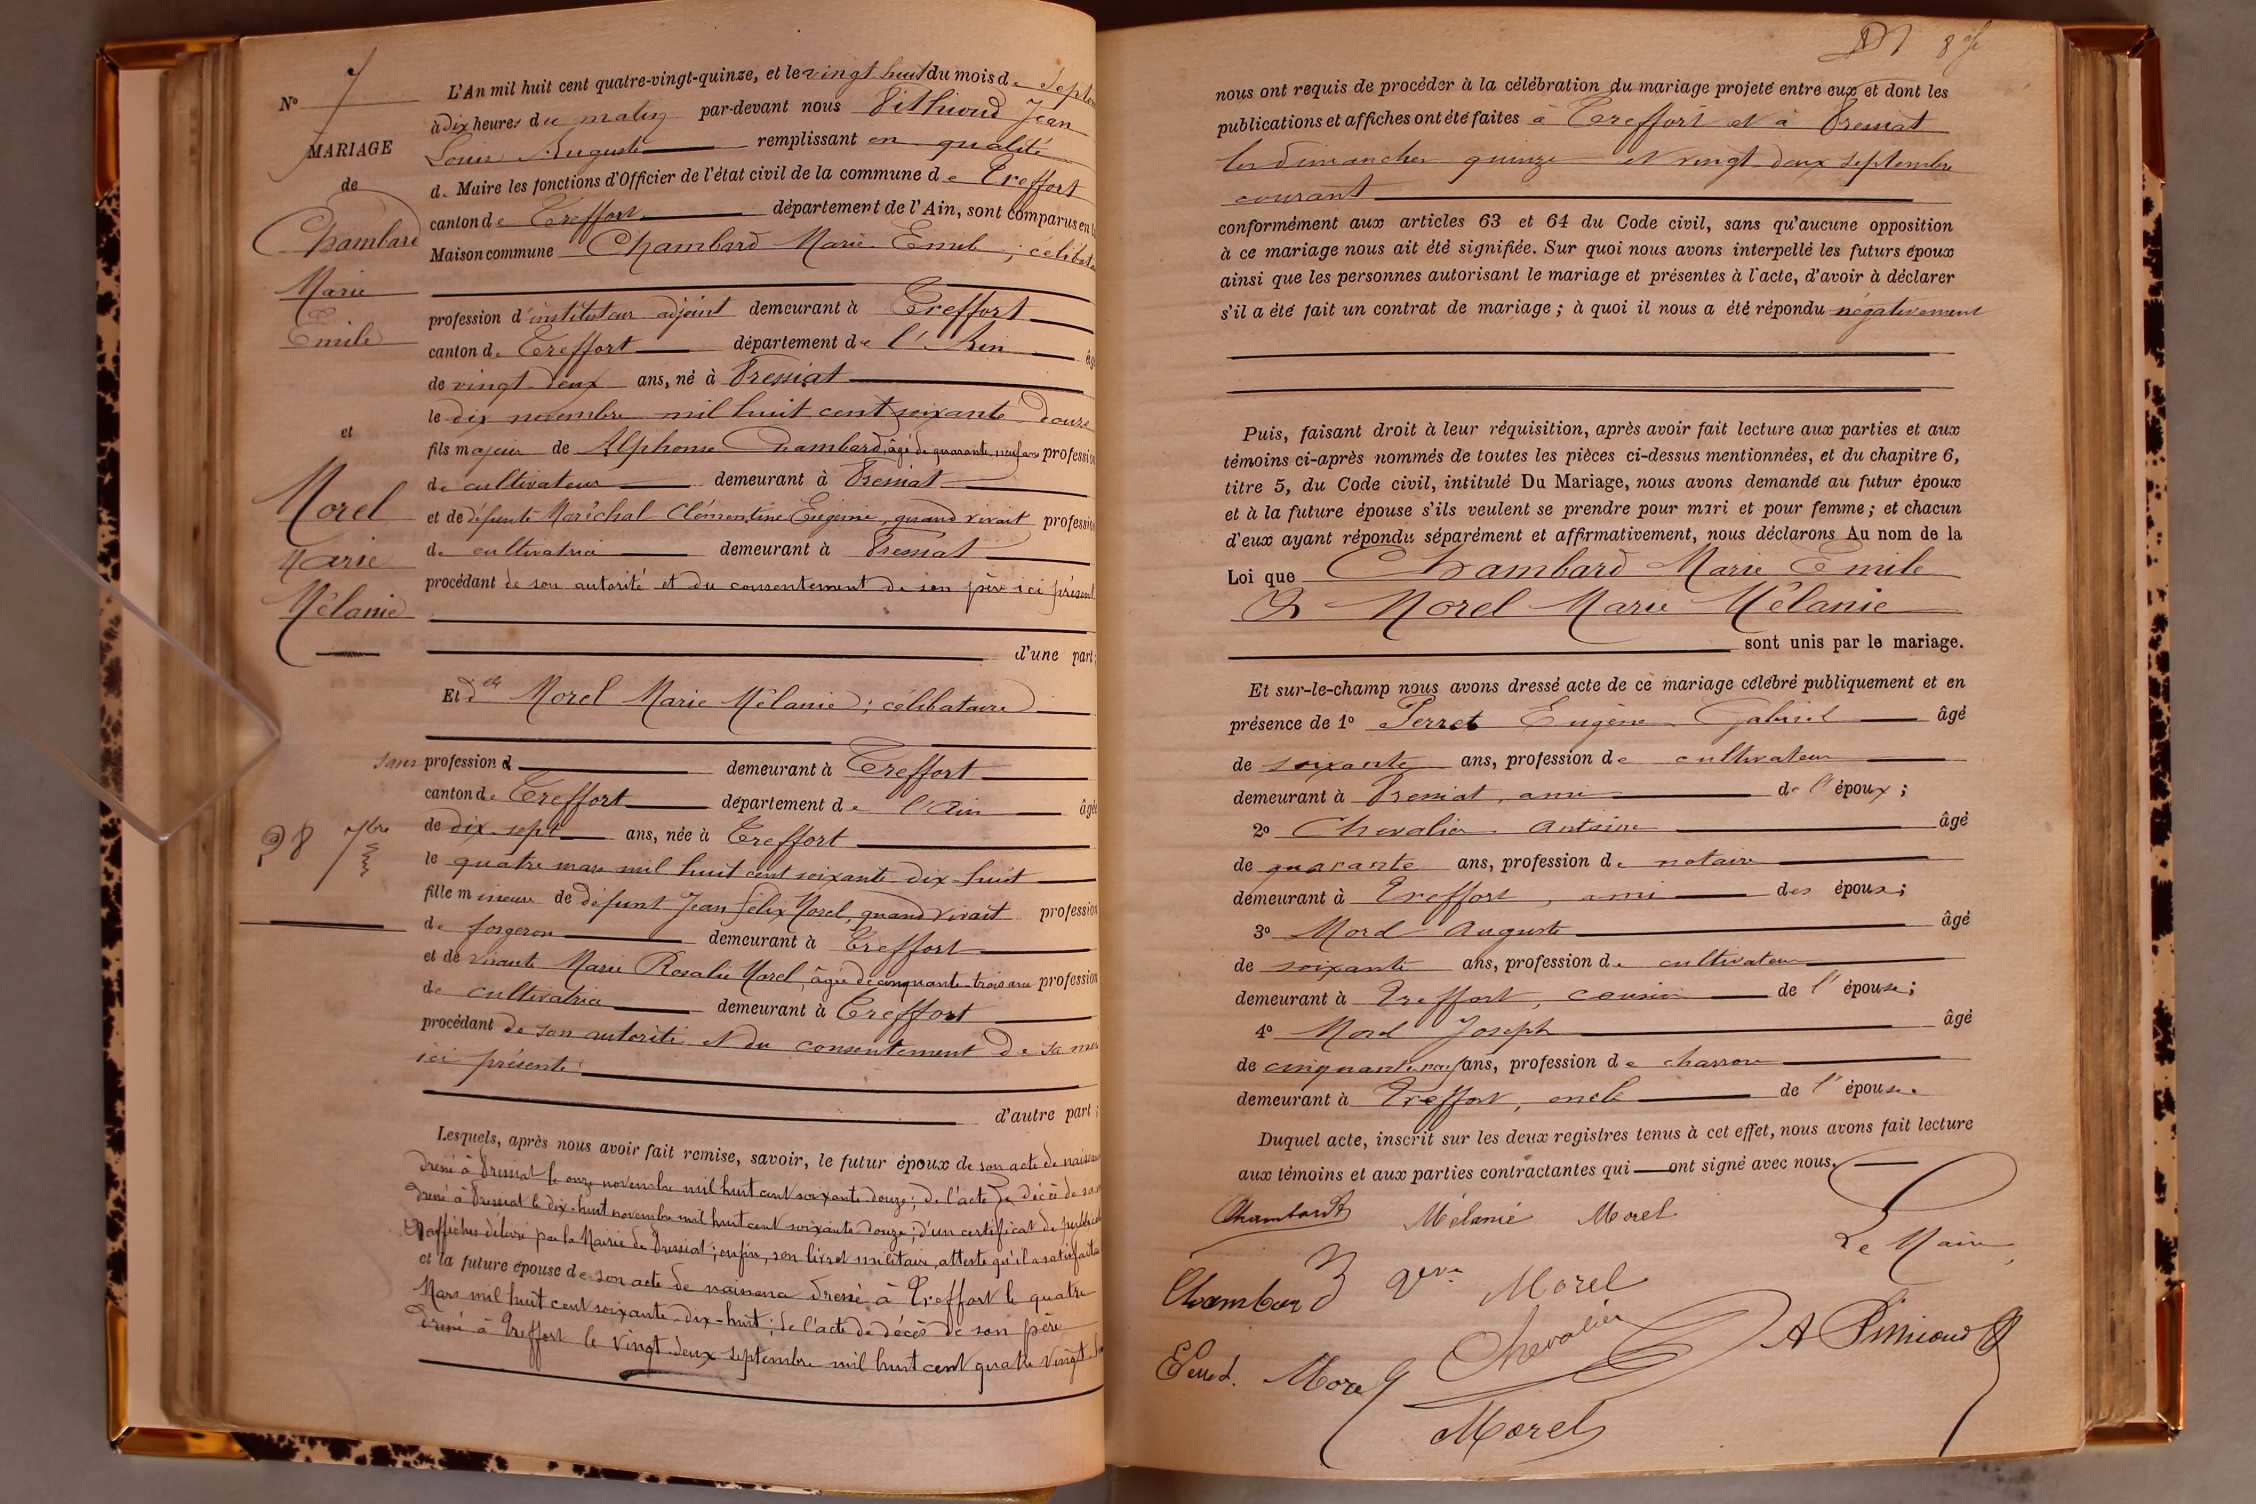 N° 7
MARIAGE
de
Chambard
Marie
Emile
et
Morel
Marie
Mélanie
28 7bre
L'An mil huit cent quatre-vingt-quinze, et le vingt huit du mois de Septem
à dix heures du matin par-devant nous Pithioud Jean
Louis Auguste remplissant en qualité
de Maire les fonctions d'Officier de l'état civil de la commune de Treffort
canton de Treffort département de l'Ain, sont comparus en la
Maison commune Chambard Marie Emile ; célibata
profession d'instituteur adjoint demeurant à Treffort
canton de Treffort département de l'Ain âgé
de vingt-deux ans, né à Pressiat
le dix novembre mil huit cent soixante douze
fils majeur de Alphonse Chambard, âgé de quarante-neuf ans profession
de cultivateur demeurant à Pressiat
et de défunte Maréchal Clémentine Eugénie, quand vivait profession
de cultivatrice demeurant à Pressiat
procédant de son autorité et du consentement de son père ici présent
d'une part;
Et dlle Morel Marie Mélanie ; célibataire
sans profession d demeurant à Treffort
canton de Treffort département de l'Ain âgée
de dix-sept ans, née à Treffort
le quatre mars mil huit cent soixante dix-huit
fille mineure de défunt Jean Félix Morel, quand vivait profession
de forgeron demeurant à Treffort
et de vivante Marie Rosalie Morel, âgée de cinquante-trois ans profession
de cultivatrice demeurant à Treffort
procédant de son autorité et du consentement de sa mère
ici présente
d'autre part ;
Lesquels, après nous avoir fait remise, savoir, le futur époux de son acte de naissance
dressé à Pressiat le onze novembre mil huit cent soixante douze ; de l'acte de décès de sa
dressé à Pressiat le dix-huit novembre mil huit cent soixante douze ; d'un certificat de publication
et affiches délivré par la Mairie de Pressiat ; enfin, son livret militaire, atteste qu'il a satisfait
et la future épouse de son acte de naissance dressé à Treffort le quatre
Mars mil huit cent soixante-dix-huit ; de l'acte de décès de son père
dressé à Treffort le vingt-deux septembre mil huit cent quatre vingt
nous ont requis de procéder à la célébration du mariage projeté entre eux et dont les
publications et affiches ont été faites à Treffort et à Pressiat
les dimanches quinze et vingt deux septembre
courant
conformément aux articles 63 et 64 du Code civil, sans qu'aucune opposition
à ce mariage nous ait été signifiée. Sur quoi nous avons interpellé les futurs époux
ainsi que les personnes autorisant le mariage et présentes à l'acte, d'avoir à déclarer
s'il a été fait un contrat de mariage ; à quoi il nous a été répondu négativement
Puis, faisant droit à leur réquisition, après avoir fait lecture aux parties et aux
témoins ci-après nommés de toutes les pièces ci-dessus mentionnées, et du chapitre 6,
titre 5, du Code civil, intitulé Du Mariage, nous avons demandé au futur époux
et à la future épouse s'ils veulent se prendre pour mari et pour femme ; et chacun
d'eux ayant répondu séparément et affirmativement, nous déclarons Au nom de la
Loi que Chambard Marie Emile
Et Morel Marie Mélanie
sont unis par le mariage.
Et sur-le-champ nous avons dressé acte de ce mariage célébré publiquement et en
présence de 1° Perret Eugène Gabriel âgé
de soixante ans, profession de cultivateur
demeurant à Pressiat, ami de l'époux ;
2° Chevalier Antoine âgé
de quarante ans, profession de notaire
demeurant à Treffort, ami des époux ;
3° Morel Auguste âgé
de soixante ans, profession de cultivateur
demeurant à Treffort, cousin de l'épouse ;
4° Morel Joseph âgé
de cinquante neuf ans, profession de charron
demeurant à Treffort, oncle de l'épouse.
Duquel acte, inscrit sur les deux registres tenus à cet effet, nous avons fait lecture
aux témoins et aux parties contractantes qui ont signé avec nous.
Chambard Mélanie Morel
Le Maire
Chambard Vve Morel
Chevalier
Perret. Morel
Morel